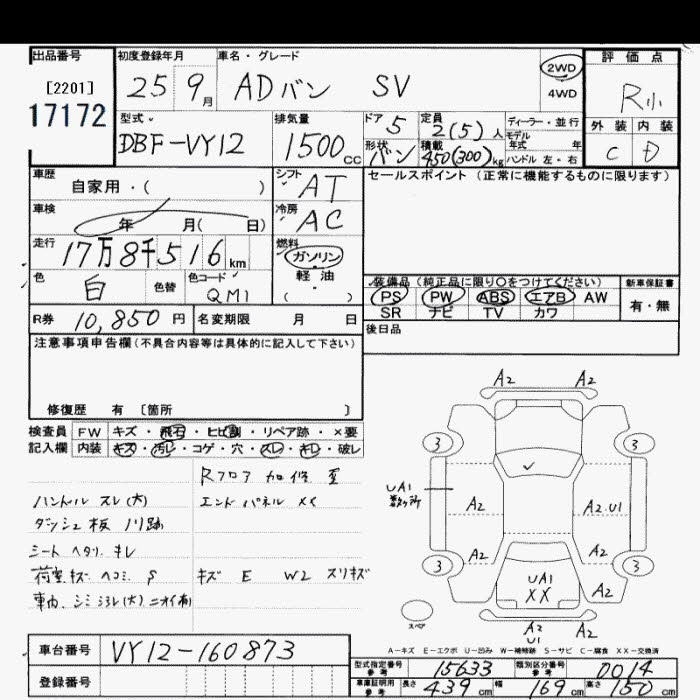 出品番号 初度登録年月 車名・グレード 評価点
[2201] 25 9月 ADバン SV 2WD R小
17172 4WD 外装 内装
C D
型式 排気量 ドア 5 定員 2(5)人 ディーラー・並行
DBF-VY12 1500cc 形状 バン 積載 450(300)kg モデル年式 年
ハンドル 左・右
車歴 自家用・( ) シフト AT セールスポイント (正常に機能するものに限ります)
車検 年 月( 日) 冷房 AC
走行 17万8千516km 燃料 ガソリン
軽油
( )
色 白 色替 色コード QM1
装備品 (純正品に限り○をつけてください) 新車保証書
PS PW ABS エアB AW 有・無
SR ナビ TV カワ
R券 10,850円 名変期限 月 日 後日品
注意事項申告欄(不具合内容等は具体的に記入して下さい)
修復歴 有 〔箇所 〕
検査員 FW キズ・飛石・ヒビ割・リペア跡・×要
記入欄 内装 キズ・汚レ・コゲ・穴・スレ・キレ・破レ
Rフロア 加修 歪
ハンドル スレ(大) エンドパネル XX
ダッシュ板 ノリ跡
シート ヘタリ キレ
荷室 キズ ヘコミ S キズ E W2 スリキズ
車内 シミ ヨゴレ(大) ニオイ有
A2 A2
3 3
UA1
数ヶ所
A2 A2.U1
A2 A2
3 3
UA1
XX
A2
スペア
A2 A2
U1
A-キズ E-エクボ U-凹み W-補修跡 S-サビ C-腐食 XX-交換済
車台番号 VY12-160873
登録番号
型式指定番号 参考 15633 類別区分番号 参考 0014
車庫証明用 参考 長さ 439cm 幅 169cm 高さ 150cm